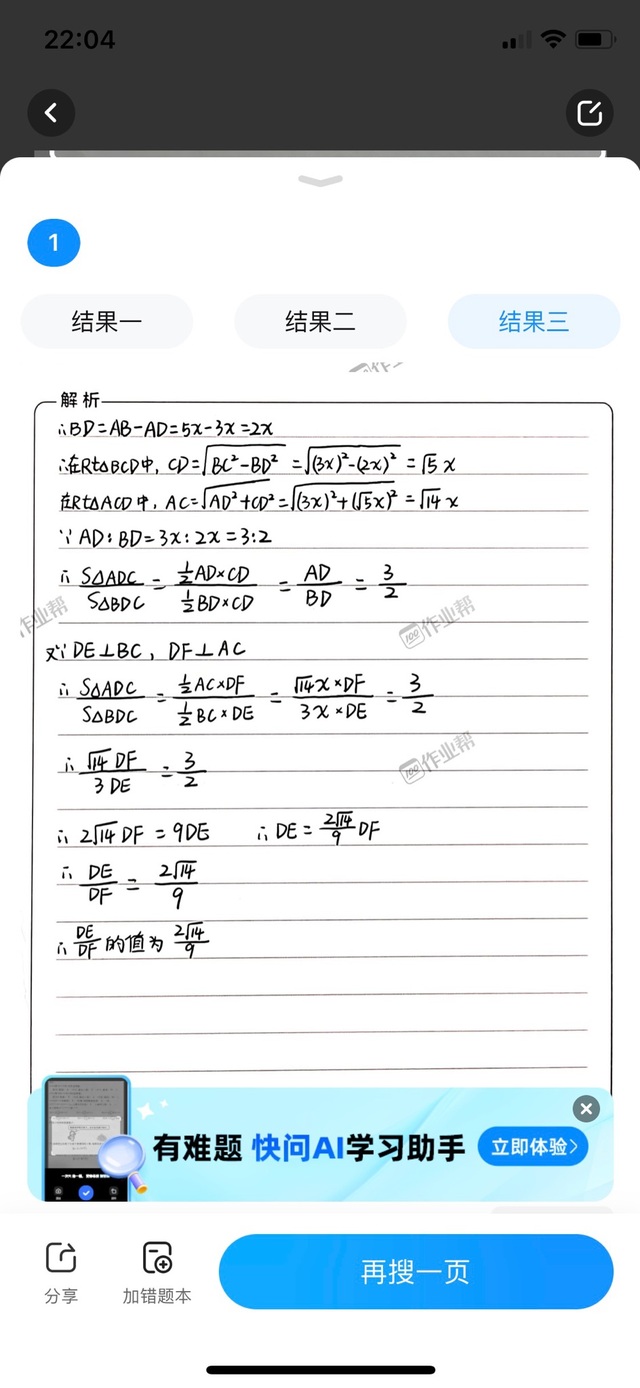 22:04
1
结果一
结果二
结果三
解析
∴BD=AB-AD=5x-3x=2x
∴在Rt△BCD中, CD=√(BC²-BD²)=√((3x)²-(2x)²)=√5x
在Rt△ACD中, AC=√(AD²+CD²)=√((3x)²+(√5x)²)=√14x
∵AD:BD=3x:2x=3:2
∴ S△ADC/S△BDC = (½AD×CD)/(½BD×CD) = AD/BD = 3/2
作业帮
作业帮
又∵DE⊥BC, DF⊥AC
∴ S△ADC/S△BDC = (½AC×DF)/(½BC×DE) = (√14x×DF)/(3x×DE) = 3/2
作业帮
∴ √14DF/3DE = 3/2
∴ 2√14DF=9DE ∴DE=2√14/9 DF
∴ DE/DF = 2√14/9
∴ DE/DF的值为2√14/9
有难题 快问AI学习助手
立即体验>
分享
加错题本
再搜一页